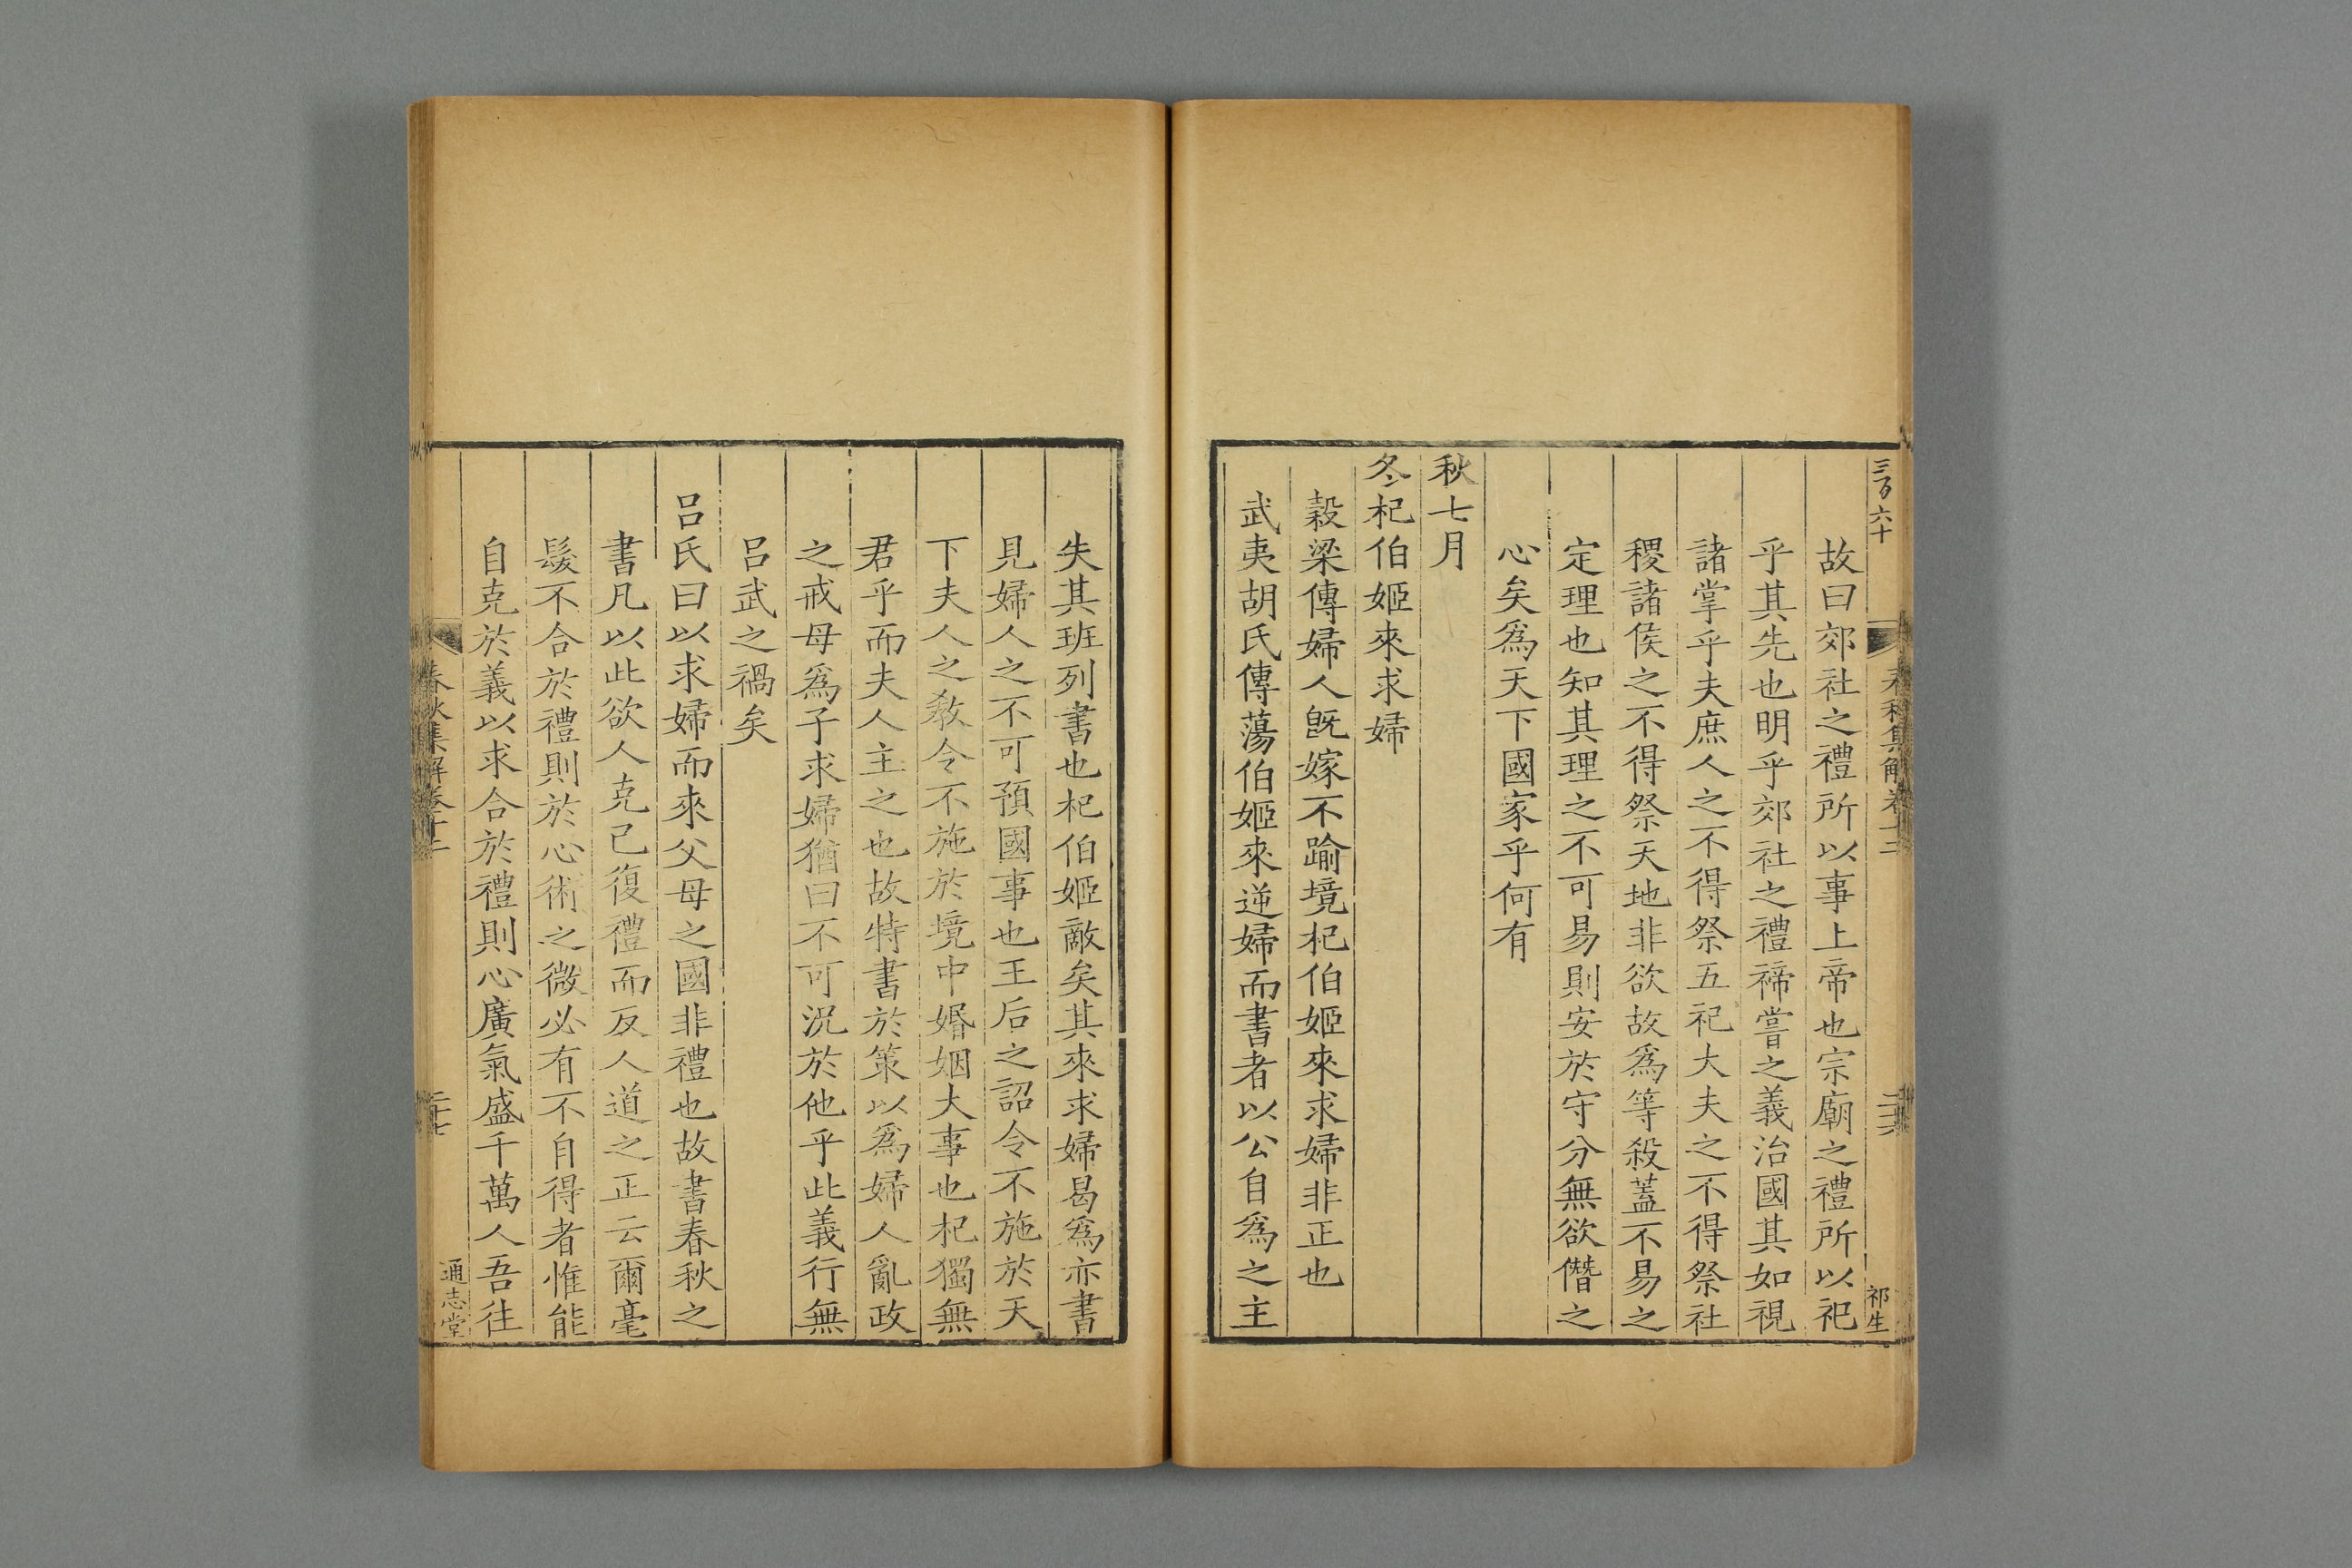 三百六十
春秋集解卷十二
二十六
祁生
故曰郊社之禮所以事上帝也宗廟之禮所以祀
乎其先也明乎郊社之禮禘嘗之義治國其如視
諸掌乎夫庶人之不得祭五祀大夫之不得祭社
稷諸侯之不得祭天地非欲故爲等殺蓋不易之
定理也知其理之不可易則安於守分無欲僭之
心矣爲天下國家乎何有
秋七月
冬杞伯姬來求婦
穀梁傳婦人旣嫁不踰境杞伯姬來求婦非正也
武夷胡氏傳蕩伯姬來逆婦而書者以公自爲之主
失其班列書也杞伯姬敵矣其來求婦曷爲亦書
見婦人之不可預國事也王后之詔令不施於天
下夫人之敎令不施於境中婚姻大事也杞獨無
君乎而夫人主之也故特書於策以爲婦人亂政
之戒母爲子求婦猶曰不可況於他乎此義行無
呂武之禍矣
呂氏曰以求婦而來父母之國非禮也故書春秋之
書凡以此欲人克己復禮而反人道之正云爾毫
髮不合於禮則於心術之微必有不自得者惟能
自克於義以求合於禮則心廣氣盛千萬人吾往
春秋集解卷十二
二十七
通志堂